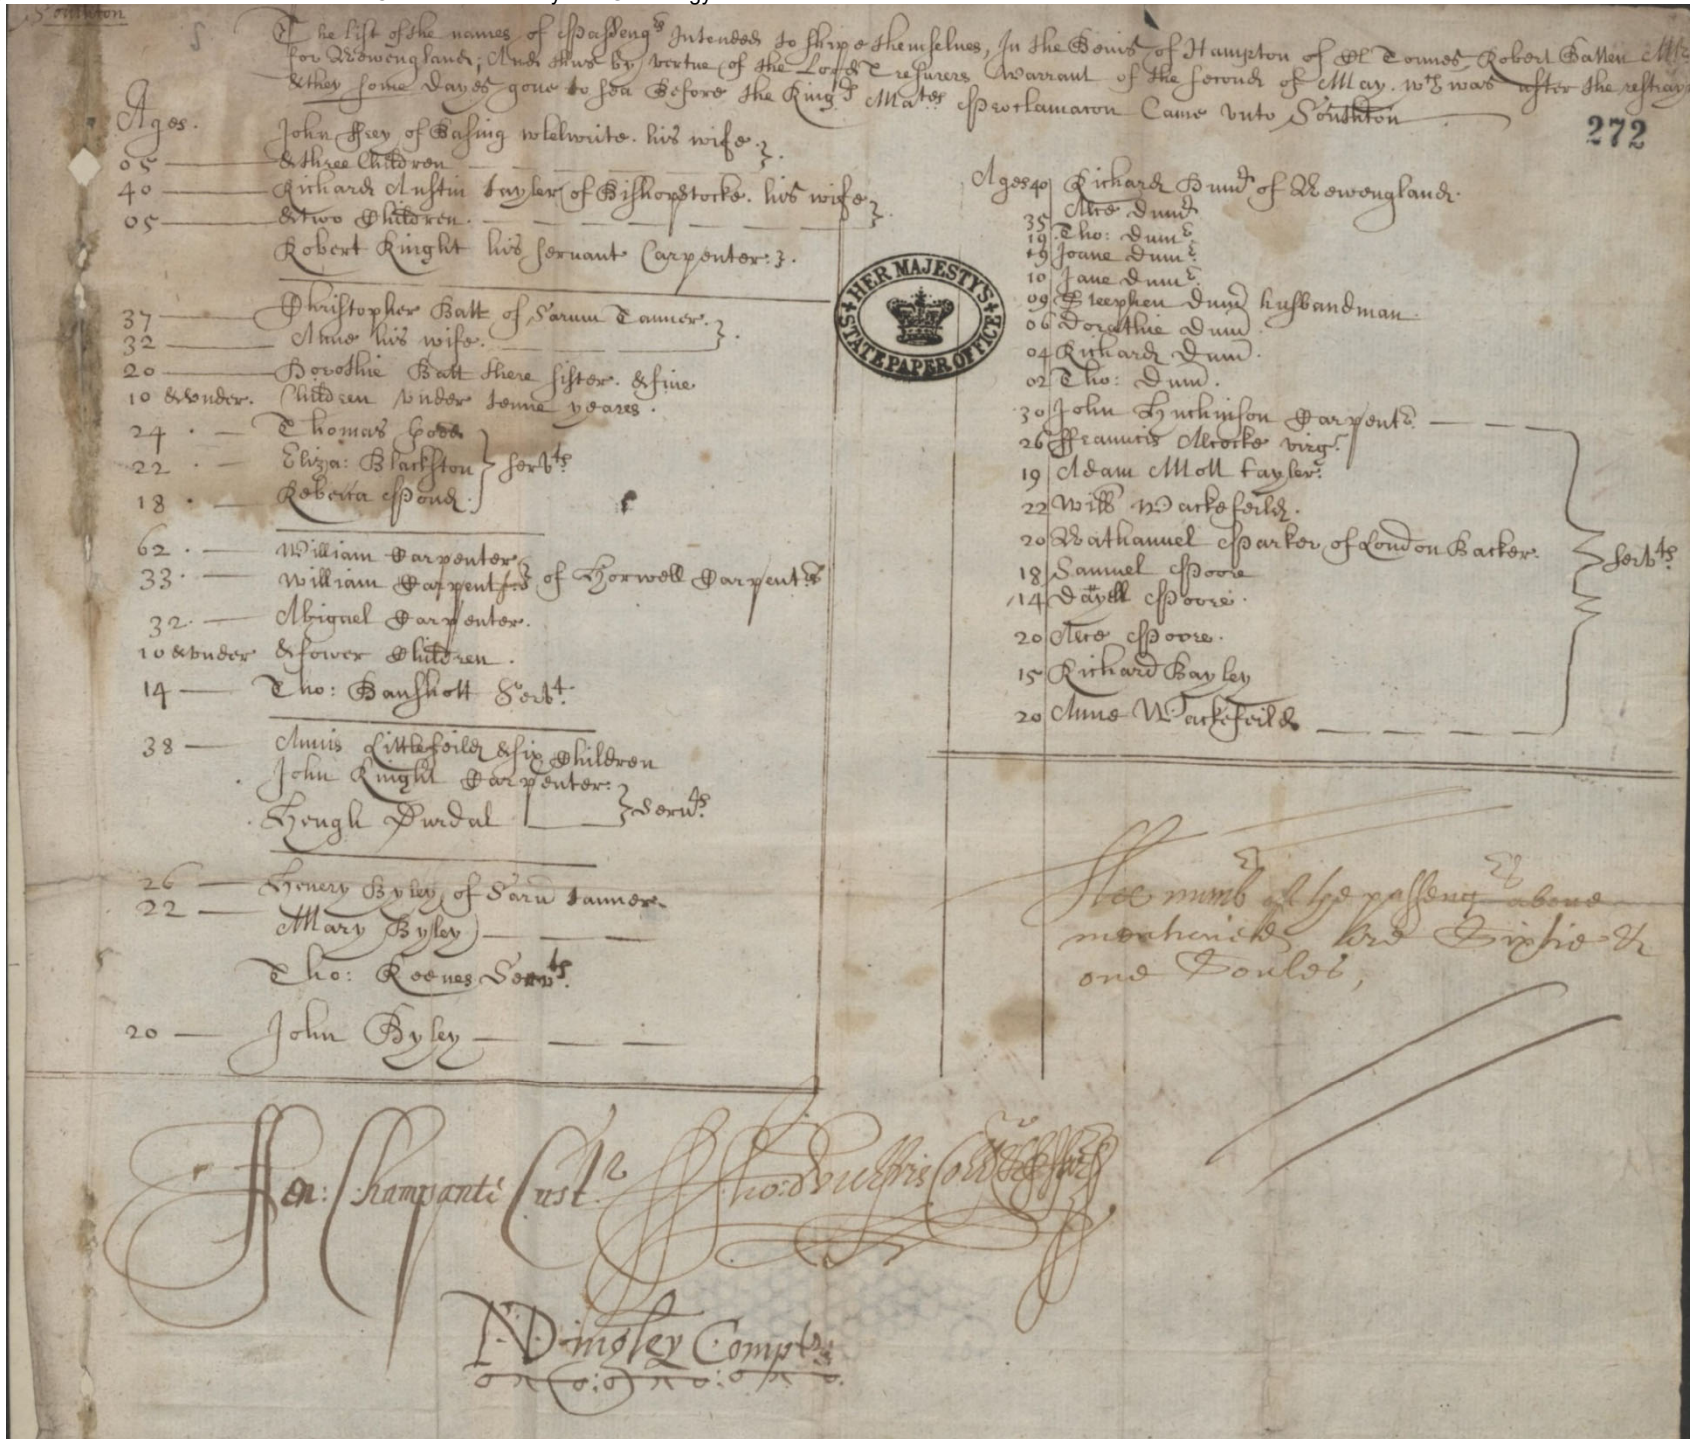 Southton
The list of the names of Passengrs Intended to shipe themselues, In the Beuis of Hampton of Cl Tonnes, Robert Batten Mr
for Newengland, And thus by vertue of the Lord Tresurers warrant of the second of May. wch was after the restray
& they some dayes gone to sea Before the Kings Mates Proclamacon Came vnto Southton
272
Ages.
John Frey of Basing whelwrite. his wife
05 & three Children
40 Richard Austin tayler of Bishopstocke. his wife
05 & two Children.
Robert Knight his servant Carpenter.
37 Christopher Batt of Sarum Tanner.
32 Anne his wife.
20 Dorothie Batt there sister. & fiue
10 & vnder. Children vnder tenne yeares.
24 Thomas Good
22 Eliza: Blackston servts
18 Rebecca Pond.
62 William Carpenter
33 William Carpenter of Horwell Carpentrs
32 Abigael Carpenter.
10 & vnder & fower Children.
14 Tho: Banshott Servt.
38 Annis Littlefeild & six Children
John Knight Carpenter.
Heugh Durdal Servts
26 Henery Byley of Sarū tanner.
22 Mary Byley
Tho: Reeues Servts.
20 John Byley
Ages 40 Richard Dum̄ of Newengland.
35 Alce Dum̄
19 Tho: Dum̄.
19 Joane Dum̄.
10 Jane Dum̄.
09 Steephen Dum̄ husbandman.
06 Dorathie Dum̄.
04 Richard Dum̄.
02 Tho: Dum̄.
30 John Huchinson Carpentr.
26 Francis Alcocke virg.
19 Adam Mott tayler.
22 Will Wackefeild.
20 Nathanuel Parker of London Backer. servts
18 Samuel Poore
14 Dayell Poore.
20 Alce Poore.
15 Richard Bayley
20 Anne Wackefeild
HER MAJESTY'S
STATE PAPER OFFICE
The numbr of the passengrs aboue
mentioned are Sixtie &
one Soules,
Hen: Champante Custr
N Dingley Comptr